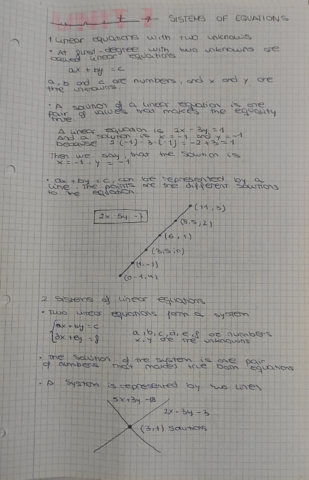 SYSTEMS OF EQUATIONS
1 Linear equations with two unknowns
• At first-degree with two unknowns are
called linear equations
ax + by = c
a, b and c are numbers, and x and y are
the unknowns
• A solution of a linear equation is one
pair of values that makes the equality
true
A linear equation is 2x - 3y = 1
and a solution is x = -1 and y = -1
because 2·(-1)-3·(-1) = -2+3 = 1
Then we say that the solution is
x = -1, y = -1
• ax + by = c, can be represented by a
line the points are the different solutions
to the equation
2 Systems of linear equations
• Two linear equations form a system
ax + by = c
dx + ey = f
a, b, c, d, e, f are numbers
x, y are the unknowns
• The solution of the system is one pair
of numbers that makes true both equations
• A system is represented by two lines
5x + 3y = 18
2x - 3y = 3
(3,1) solution